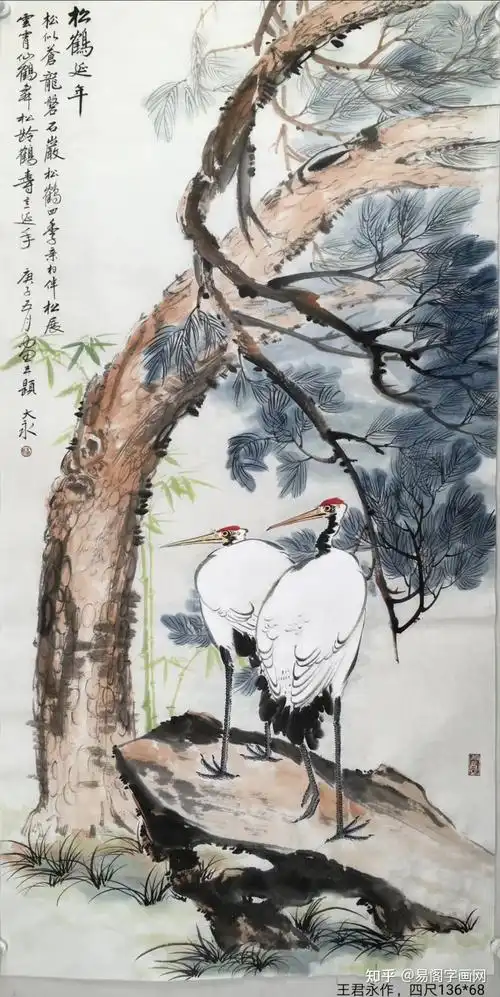 松鶴延年
松似蒼龍磐石巖松鶴四季亲相伴松展
雲宵仙鶴舞松龄鶴壽立延手
庚子五月
题 大永
知乎 @易阁字画网
王君永作，四尺136*68